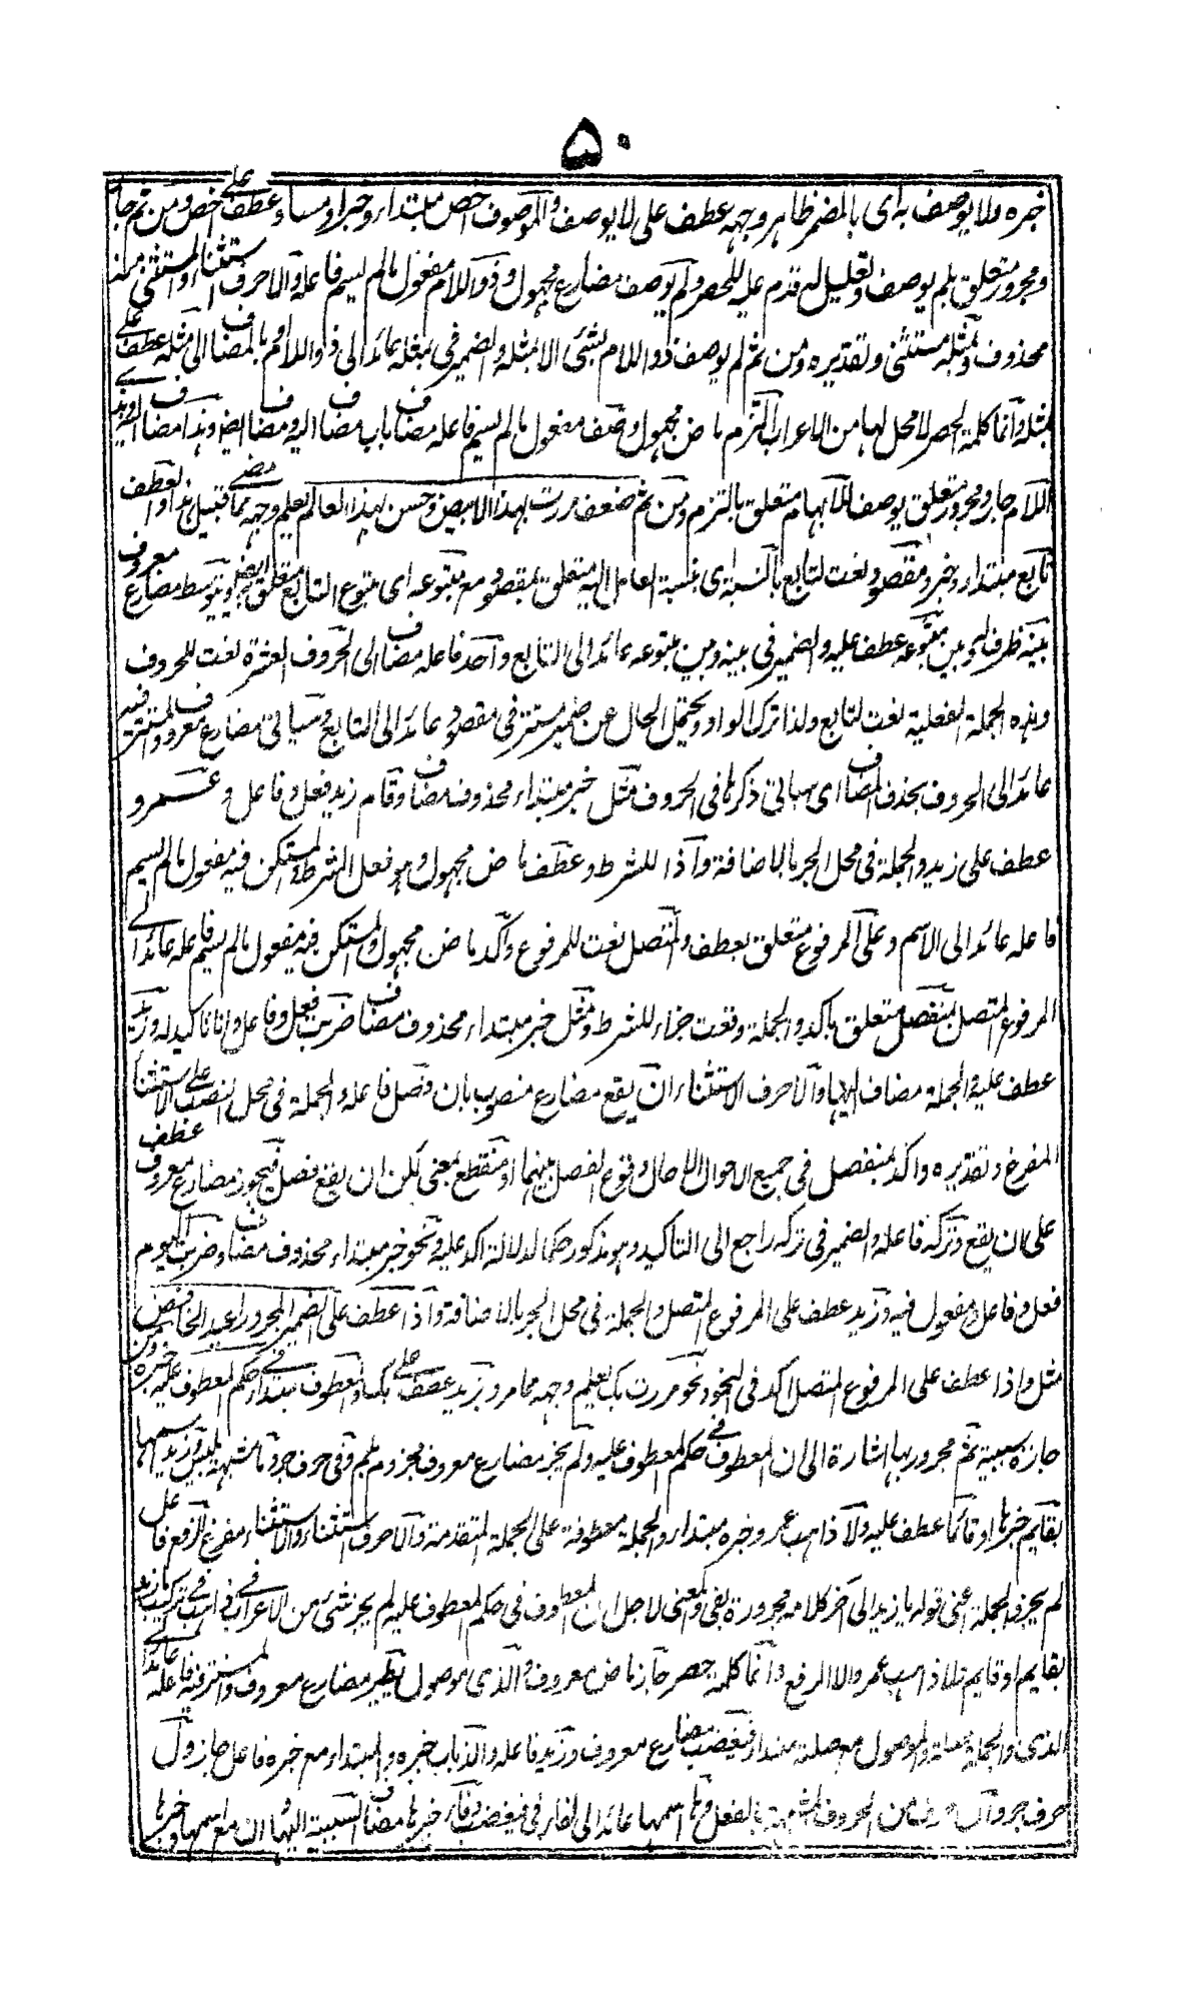 ۵۰
خبره ولا يوصف به اى بالمضمر ظاهر وجهه عطف على لا يوصف والموصوف اخص مبتداء وخبر او مساو عطف على اخص ومن ثم جار
ومجرور متعلق بلم يوصف وتعليل له قدم عليه للحصر ولم يوصف مضارع مجهول وذو اللام مفعول مالم يسم فاعله والا حرف استثناء والمستثنى منه
محذوف وبمثله مستثنى وتقديره ومن ثم لم يوصف ذو اللام بشئ الا بمثله والضمير فى بمثله عائد الى ذو اللام او بالمضاف الى مثله عطف على
بمثله وانما كلمة الحصر لا محل لها من الاعراب التزم ماض مجهول وصف مفعول مالم يسم فاعله مضاف باب مضاف اليه ومضاف ايضا وهذا مضاف اليه وبذى
اللام جار ومجرور متعلق بوصف للابهام متعلق بالتزم ومن ثم ضعف مررت بهذا الابيض وحسن بهذا العالم يعلم وجهه مما قبيل هذا مضى والعطف
تابع مبتداء وخبر ومقصود نعت لتابع بالنسبة اى بنسبة العامل اليه متعلق بمقصود مع متبوعه اى متبوع التابع متعلق ايضا ويتوسط مضارع معروف
بينه ظرف له وبين متبوعه عطف عليه والضمير فى بينه وبين متبوعه عائد الى التابع واحد فاعله مضاف الى الحروف العشرة نعت للحروف
وهذه الجملة الفعلية نعت لتابع ولذا ترك الواو ويحتمل الحال عن ضمير مستتر فى مقصود عائد الى التابع وسياتى مضارع معروف والمستتر فيه
عائد الى الحروف بحذف المضاف اى سياتى ذكرها فى الحروف مثل خبر مبتداء محذوف مضاف وقام زيد فعل وفاعل وعمرو
عطف على زيد والجملة فى محل الجر بالاضافة واذا للشرط وعطف ماض مجهول وهو فعل الشرط والمستكن فيه مفعول مالم يسم
فاعله عائد الى الاسم وعلى المرفوع متعلق بعطف والمتصل نعت للمرفوع واكد ماض مجهول والمستكن فيه مفعول مالم يسم فاعله عائد الى
المرفوع المتصل بمنفصل متعلق باكد والجملة وقعت جزاء للشرط ومثل خبر مبتداء محذوف مضاف ضربت فعل وفاعل وانا تاكيد له وزيد
عطف عليه والجملة مضاف اليها والا حرف الاستثناء ان يقع مضارع منصوب بان وفصل فاعله والجملة فى محل النصب على الاستثناء
المفرغ وتقديره واكد بمنفصل فى جميع الاحوال الا حال وقوع الفصل بينهما او منقطع بمعنى لكن ان يقع فصل فيجوز مضارع معروف عطف
على ان يقع وتركه فاعله والضمير فى تركه راجع الى التاكيد وهو مذكور حكما لدلالة اكد عليه ونحو خبر مبتداء محذوف مضاف وضربت اليوم
فعل وفاعل ومفعول فيه وزيد عطف على المرفوع المتصل والجملة فى محل الجر بالاضافة واذا عطف على الضمير المجرور اعيد الخافض
مثل واذا عطف على المرفوع المتصل اكد فى النحو ونحو مررت بك يعلم وجهه مما مر وزيد عطف على بك والمعطوف مبتداء فى حكم المعطوف عليه خبره ومن
جارة سببية ثم مجرور بها اشارة الى ان المعطوف فى حكم المعطوف عليه ولم يجز مضارع معروف مجزوم بلم وفى حرف جر وما مشبهة بليس وزيد اسمها
بقايم خبرها او قائما عطف عليه ولا ذاهب عمرو خبره مبتداء والجملة معطوفة على الجملة المتقدمة والا حرف استثناء والاستثناء مفرغ الرفع فاعل
لم يجز والجملة اعنى قوله ما زيد الى آخر كلامه مجرورة بفى والمعنى لاجل ان المعطوف فى حكم المعطوف عليه لم يجز شئ من الاعراب فى ذاهب فى تركيب ما زيد
بقايم او قايما ولا ذاهب عمرو الا الرفع وانما كلمة حصر جاز ماض معروف والذى موصول يطير مضارع معروف والمستتر فيه فاعله عائد الى
الذى والجملة صلته والموصول مع صلته مبتداء فيغضب مضارع معروف وزيد فاعله والذباب خبره والمبتداء مع خبره فاعل جاز ولان
حرف جر وان حرف من الحروف المشبهة بالفعل وها اسمها عائد الى الفاء فى فيغضب وفاء خبرها مضاف السببية اليها وان مع اسمها وخبرها